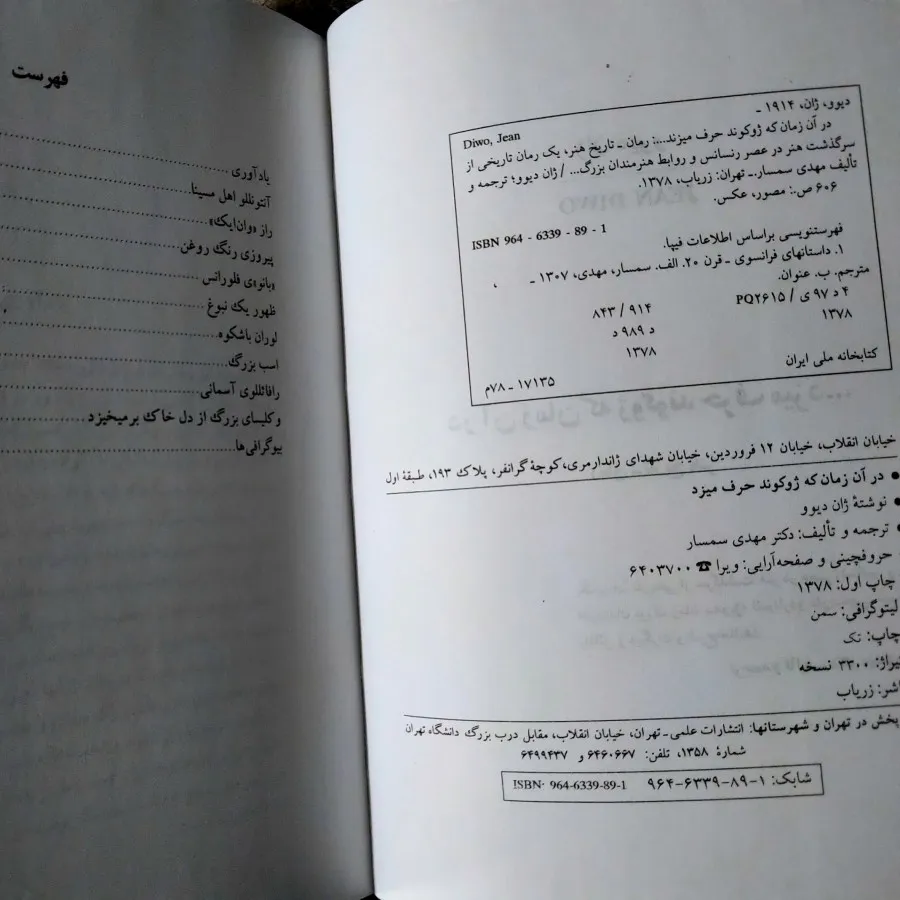 دیوو، ژان، ۱۹۱۴ ـ
Diwo, Jean
در آن زمان که ژوکوند حرف میزند...: رمان ـ تاریخ هنر، یک رمان تاریخی از
سرگذشت هنر در عصر رنسانس و روابط هنرمندان بزرگ... / ژان دیوو؛ ترجمه و
تألیف مهدی سمسار.ـ تهران: زریاب، ۱۳۷۸.
۶۰۶ ص.: مصور، عکس.
ISBN 964 - 6339 - 89 - 1
فهرستنویسی براساس اطلاعات فیپا.
۱. داستانهای فرانسوی ـ قرن ۲۰. الف. سمسار، مهدی، ۱۳۰۷ ـ ،
مترجم. ب. عنوان.
۴ د ۹۷ ی / PQ۲۶۱۵ ۸۴۳ / ۹۱۴
۱۳۷۸ د ۹۸۹ د
۱۳۷۸
کتابخانه ملی ایران ۱۷۱۳۵ ـ ۷۸م
خیابان انقلاب، خیابان ۱۲ فروردین، خیابان شهدای ژاندارمری، کوچهٔ گرانفر، پلاک ۱۹۳، طبقهٔ اول
● در آن زمان که ژوکوند حرف میزد
● نوشتهٔ ژان دیوو
● ترجمه و تألیف: دکتر مهدی سمسار
حروفچینی و صفحه‌آرایی: ویرا ☎ ۶۴۰۳۷۰۰
چاپ اول: ۱۳۷۸
لیتوگرافی: سمن
چاپ: تک
تیراژ: ۳۳۰۰ نسخه
ناشر: زریاب
پخش در تهران و شهرستانها: انتشارات علمی ـ تهران، خیابان انقلاب، مقابل درب بزرگ دانشگاه تهران
شمارهٔ ۱۳۵۸، تلفن: ۶۴۶۰۶۶۷ و ۶۴۹۹۴۳۷
شابک: ۱-۸۹-۶۳۳۹-۹۶۴ ISBN· 964-6339-89-1
فهرست
یادآوری
آنتونللو اهل مسینا
راز «وان‌ایک»
پیروزی رنگ روغن
«بانو»ی فلورانس
ظهور یک نبوغ
لوران باشکوه
اسب بزرگ
رافائللوی آسمانی
و کلیسای بزرگ از دل خاک برمیخیزد
بیوگرافی‌ها